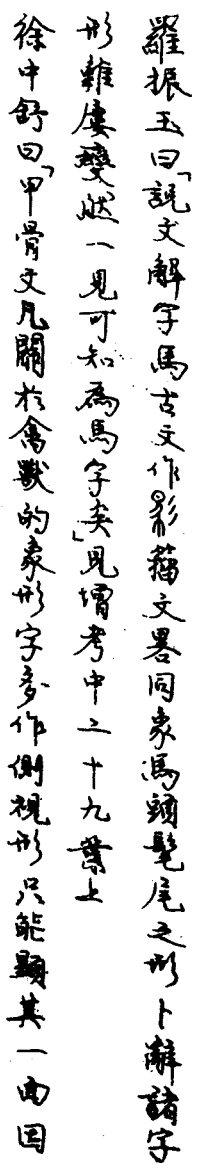 羅振玉曰「說文解字馬古文作影籀文畧同象馬頭髦尾之形卜辭諸字
形雖屢變然一見可知為馬字矣」見增考中二十九葉上
徐中舒曰「甲骨文凡關於禽獸的象形字多作側視形只能顯其一面因